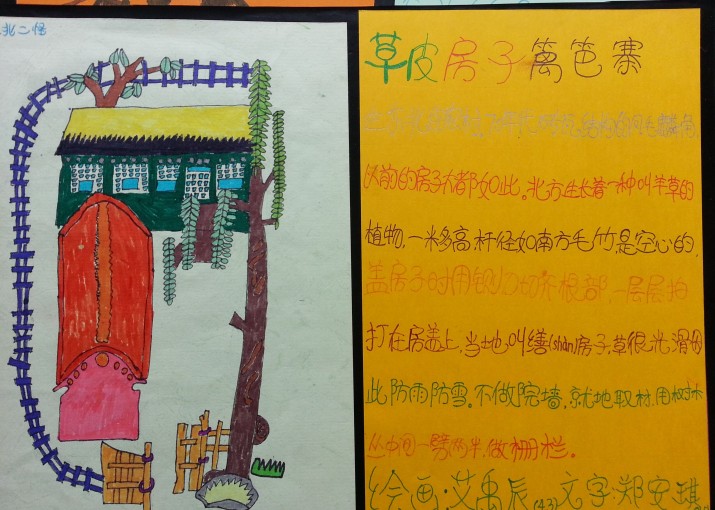 北二怪
草皮房子篱笆寨
以前的房子大都如此。北方生长着一种叫羊草的
植物,一米多高,秆径如南方毛竹是空心的,
盖房子时用铡刀切齐根部,一层层拍
打在房盖上,当地叫缮(shàn)房子,草很光滑
此防雨防雪。不做院墙,就地取材,用树木
丛中间一劈两半,做栅栏。
绘画:艾禹辰(43)文字:郑安琪